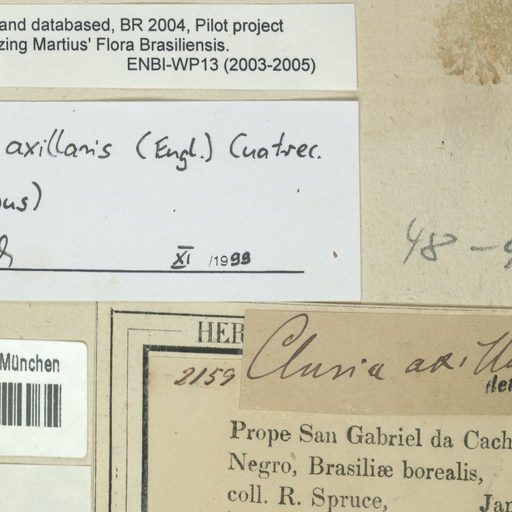 and databased, BR 2004, Pilot project
zing Martius' Flora Brasiliensis.
ENBI-WP13 (2003-2005)
axillaris (Engl.) Cuatrec.
XI /1999
48 –
München
HER
2159 Clusia axilla
det
Prope San Gabriel da Cach
Negro, Brasiliæ borealis,
coll. R. Spruce, Jan